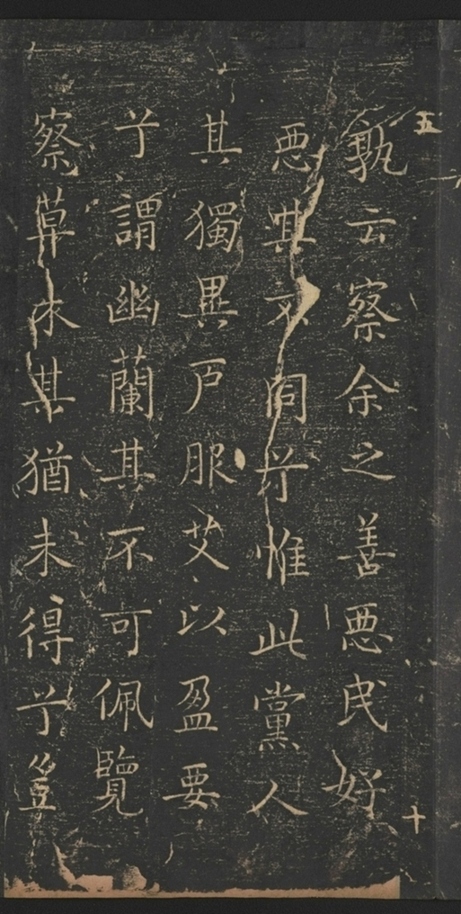 五
十
孰云察余之善悪民好
悪其不同兮惟此黨人
其獨異户服艾以盈要
兮謂幽蘭其不可佩覽
察草木其猶未得兮豈